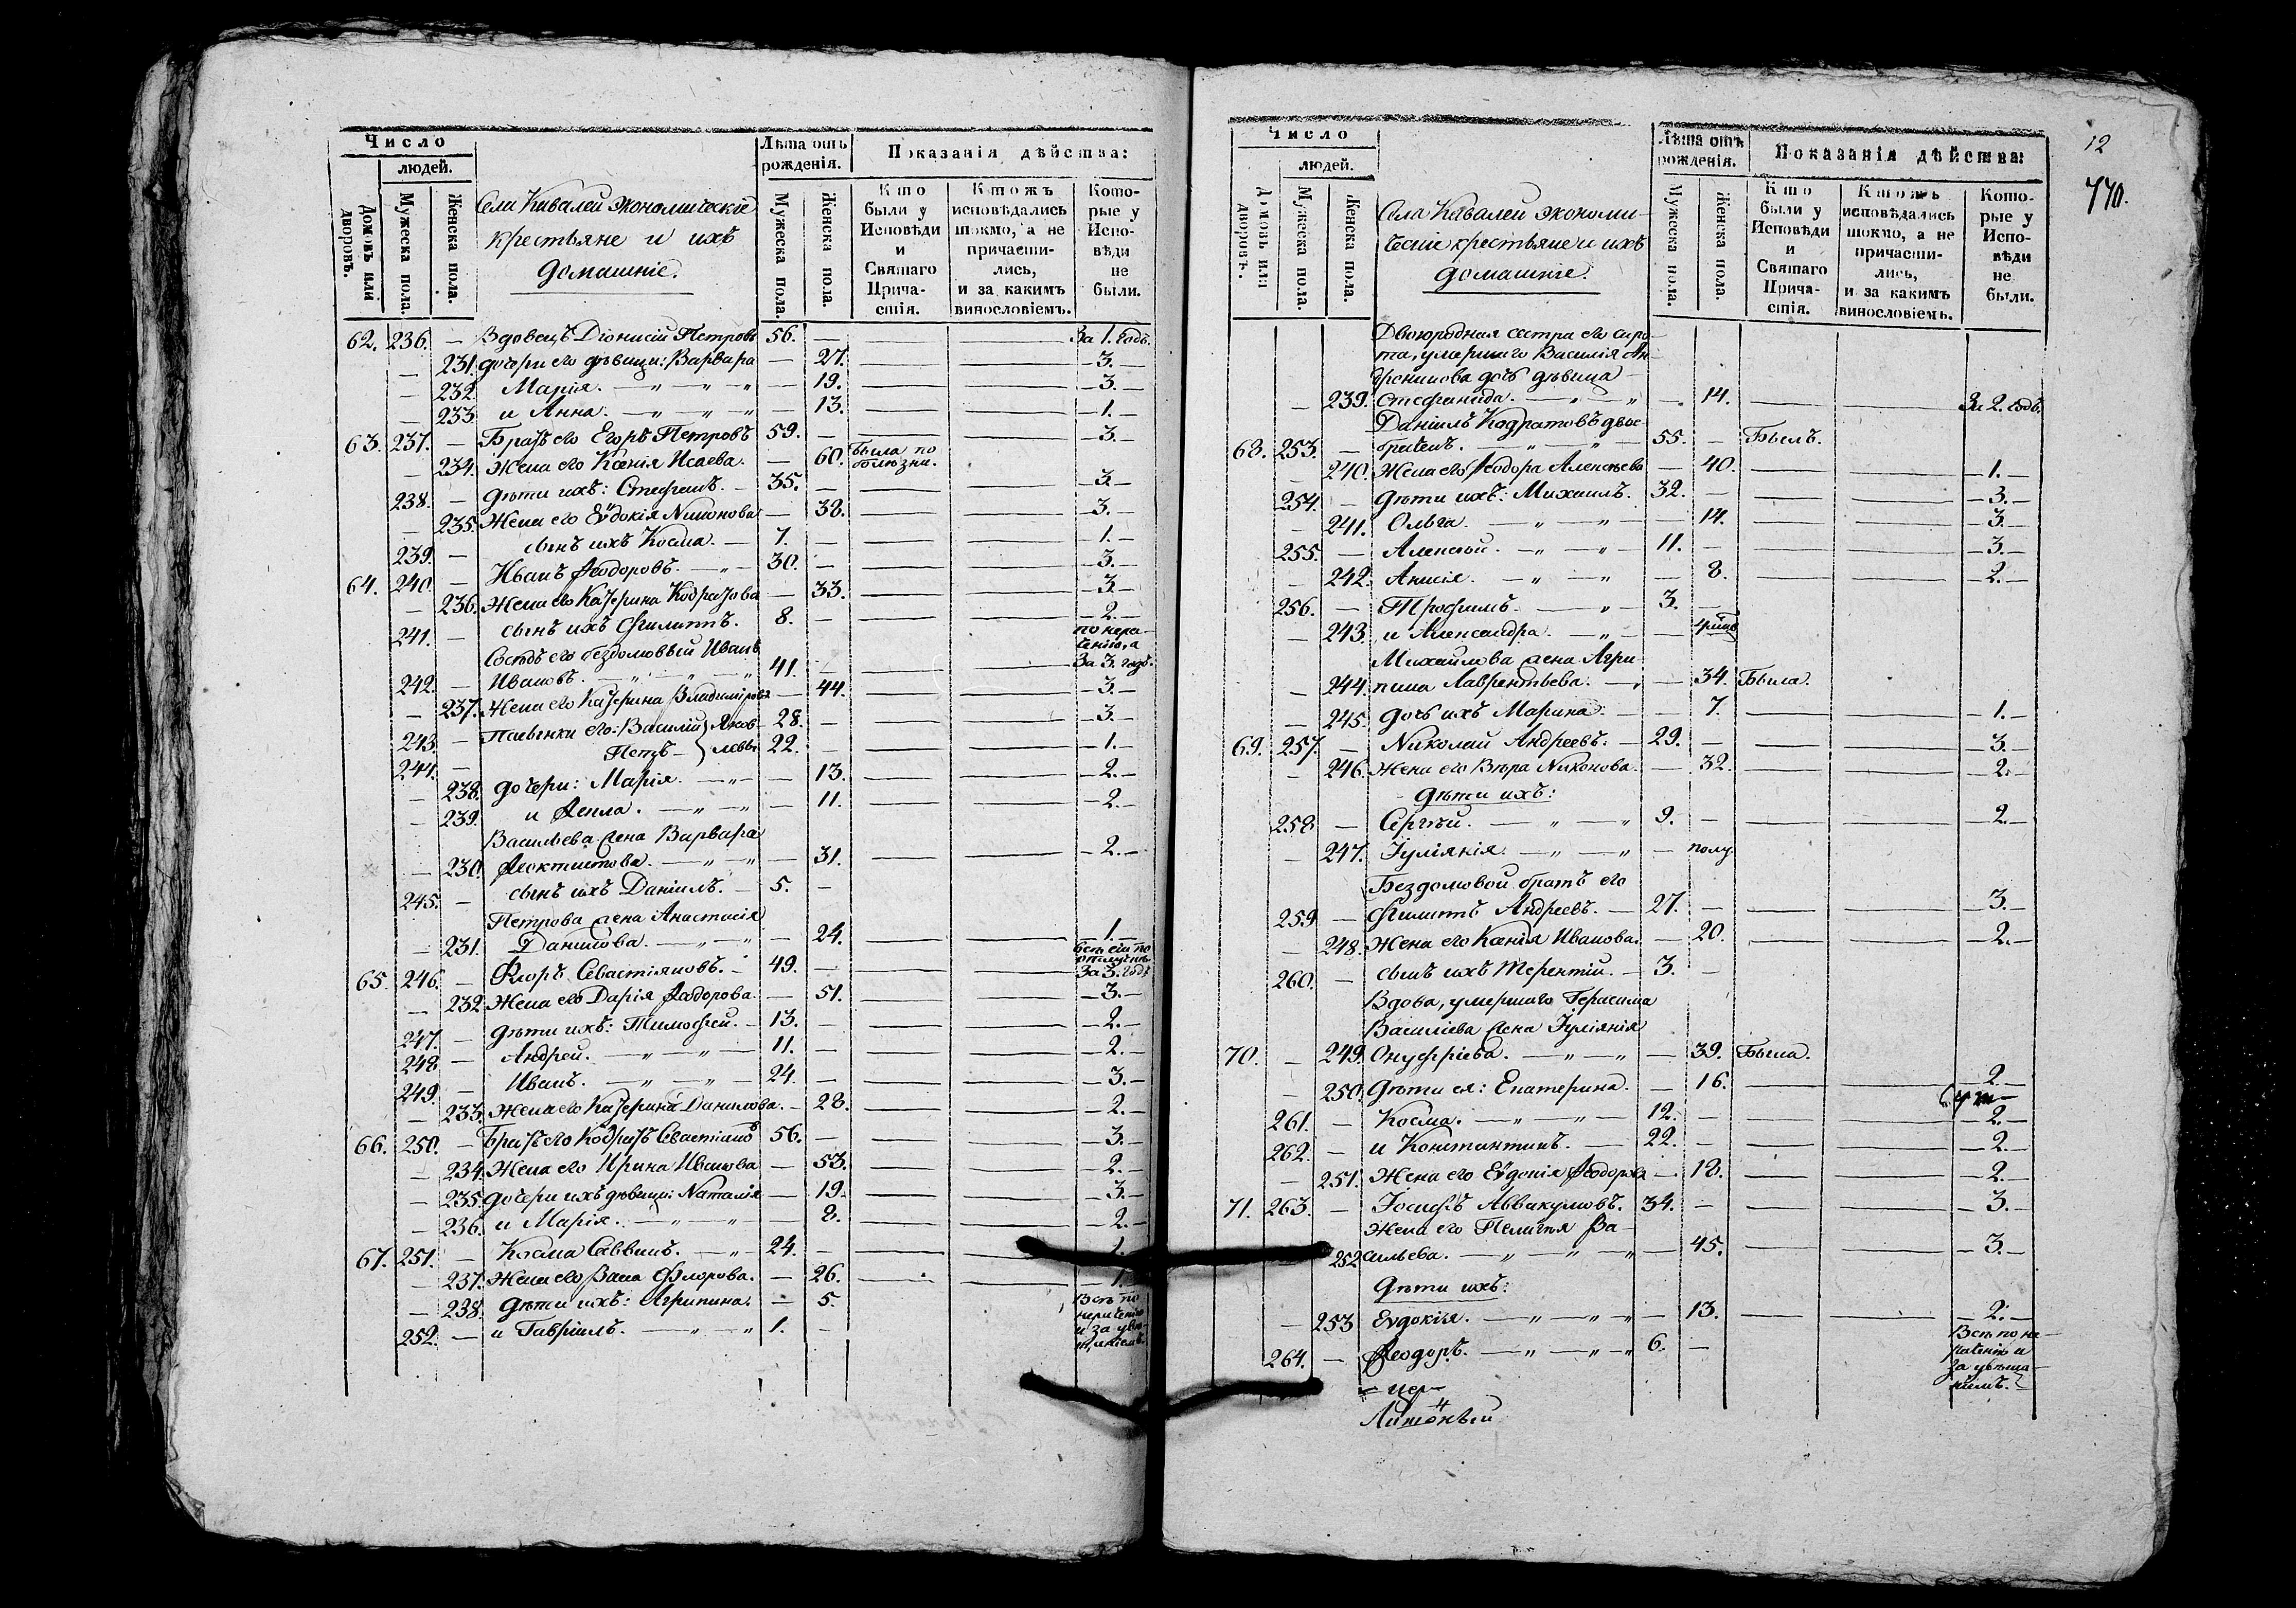 Число
людей.
Домовъ или дворовъ.
Мужеска пола.
Женска пола.
Села Кивалеи экономическіе
крестьяне и ихъ
домашніе.
Лѣта отъ рожденія.
Мужеска пола.
Женска пола.
Показанія дѣйства:
Кто были у Исповѣди и Святаго Прича-стія.
Ктожъ исповѣдались токмо, а не причасти-лись, и за какимъ винословіемъ.
Кото-рые у Испо-вѣди не были.
62. 236. — Вдовецъ Діонисій Петровъ 56. — За 1. годъ.
— 231. дочери его дѣвицы: Варвара — 27. — 3. —
— 232. Марія. — „ — „ — 19. — 3. —
— 233. и Анна. — „ — „ — 13. — 1. —
63. 237. — Братъ его Егоръ Петровъ 59. — 3. —
— 234. Жена его Ксенія Исаева. — 60. Была по болезни.
238. — дѣти ихъ: Стефанъ. — 35. — 3. —
— 235. Жена его Еѵдокія Никонова — 38. — 3. —
239. — сынъ ихъ Косма. — 7. — 1. —
64. 240. — Иванъ Ѳеодоровъ. — „ — 30. — 3. —
— 236. Жена его Катерина Кодратова — 33. — 3. —
241. — сынъ ихъ Филиппъ. 8. — 2. —
Сосѣдъ его бездомовый Иванъ
по нера-
ченію, а
242. — Ивановъ. — „ — „ 41. — За 3. годъ.
— 237. Жена его Катерина Владимірова — 44. — 3. —
243. — Пасынки его: Василій } Яков- 28. — 3. —
244. — Петръ — } левы 22. — 1. —
— 238. дочери: Марія. — „ — 13. — 2. —
— 239. и Ѳекла. — „ — „ — 11. — 2. —
Васильева жена Варвара
— 230. Ѳеоктистова. — „ — „ — 31. — 2. —
245. — сынъ ихъ Даніилъ. — 5. —
Петрова жена Анастасія
— 231. Данилова. — „ — „ — 24. — 1. —
65. 246. — Флоръ Севастіяновъ. — 49. — За 3. годъ
— 232. Жена его Дарія Ѳадорова. — 51. — 3. —
247. — дѣти ихъ: Тимофей. — 13. — 2. —
248 — Андрей. — „ — „ — 11. — 2. —
249. — Иванъ. — „ — „ — 24. — 3. —
— 233. Жена его Катерина Данилова. — 28. — 2. —
66. 250. — Братъ его Кодратъ Севастіановъ 56. — 3. —
— 234. Жена его Ирина Иванова — 53. — 2. —
— 235. дочери ихъ дѣвицы: Наталія — 19. — 3. —
— 236. и Марія. — „ — „ — 8. — 2. —
67. 251. — Косма Саввинъ. — „ — 24. — 1.
— 237. Жена его Васа Флорова. — 26. — 1.
— 238. дѣти ихъ: Агрипина. — 5.
252. — и Гавріилъ. — „ — „ 1. —
Всѣ по
нераченію
и за увѣ-
щаніемъ.
12
770.
Число
людей.
Домовъ или дворовъ.
Мужеска пола.
Женска пола.
Села Кавалеи экономи-
ческіе крестьяне и ихъ
домашніе.
Лѣта отъ рожденія.
Мужеска пола.
Женска пола.
Показанія дѣйства:
Кто были у Исповѣди и Святаго Прича-стія.
Ктожъ исповѣдались токмо, а не причасти-лись, и за какимъ винословіемъ.
Кото-рые у Испо-вѣди не были.
Двоюродная сестра его сиро-
та, умершаго Василія Ан-
дроникова дочь дѣвица —
— 239. Стефанида. — „ — „ — 14. — За 2. годъ.
Даніилъ Кодратовъ двое-
68. 253. — браченъ. — „ — „ — 55. — Былъ.
— 240. Жена его Ѳеодора Алексѣева — 40. — 1. —
254. — дѣти ихъ: Михаилъ. 32. — 3. —
— 241. Ольга. — „ — „ — 14. — 3. —
255. — Алексѣй. — „ — „ 11. — 3. —
— 242. Анисія. — „ — „ — 8. — 2. —
256. — Трофимъ. — „ — 3. —
— 243. и Александра. — „ —
Михаилова жена Агри-
— 244. пина Лаврентьева. — „ — 34. Была.
— 245. дочь ихъ Марина. — 7. — 1. —
69. 257. — Николай Андреевъ. — 29. — 3. —
— 246. Жена его Вѣра Никонова. — 32. — 2. —
дѣти ихъ:
258 — Сергѣй. — „ — „ 9. — 2. —
— 247. Іуліянія. — „ — „ — полу.
Бездомовой братъ его
259 — Филиппъ Андреевъ. — 27. — 3. —
— 248. Жена его Ксенія Иванова. — 20. — 2. —
260. — сынъ ихъ Терентій. — 3. —
Вдова, умершаго Герасима
Василіева жена Іуліянія
70. — 249. Онуфріева. — „ — „ — 39. Была.
— 250. дѣти ея: Екатерина. — 16. — 2. —
261. — Косма. — „ — „ — 12. — 2. —
262. — и Константинъ. — 22. — 2. —
— 251. Жена его Еѵдокія Ѳеодорова — 18. — 2. —
71. 263. — Іосифъ Аввакумовъ. 34. — 3. —
Жена его Пелагѣя Ва-
252 сильева. — „ — „ — „ — 45. — 3. —
дѣти ихъ:
— 253 Еѵдокія. — „ — „ — 13. — 2. —
264. — Ѳеодоръ. — „ — „ — 6. —
Всѣ по не-
раченію и
за увѣща-
ніемъ.